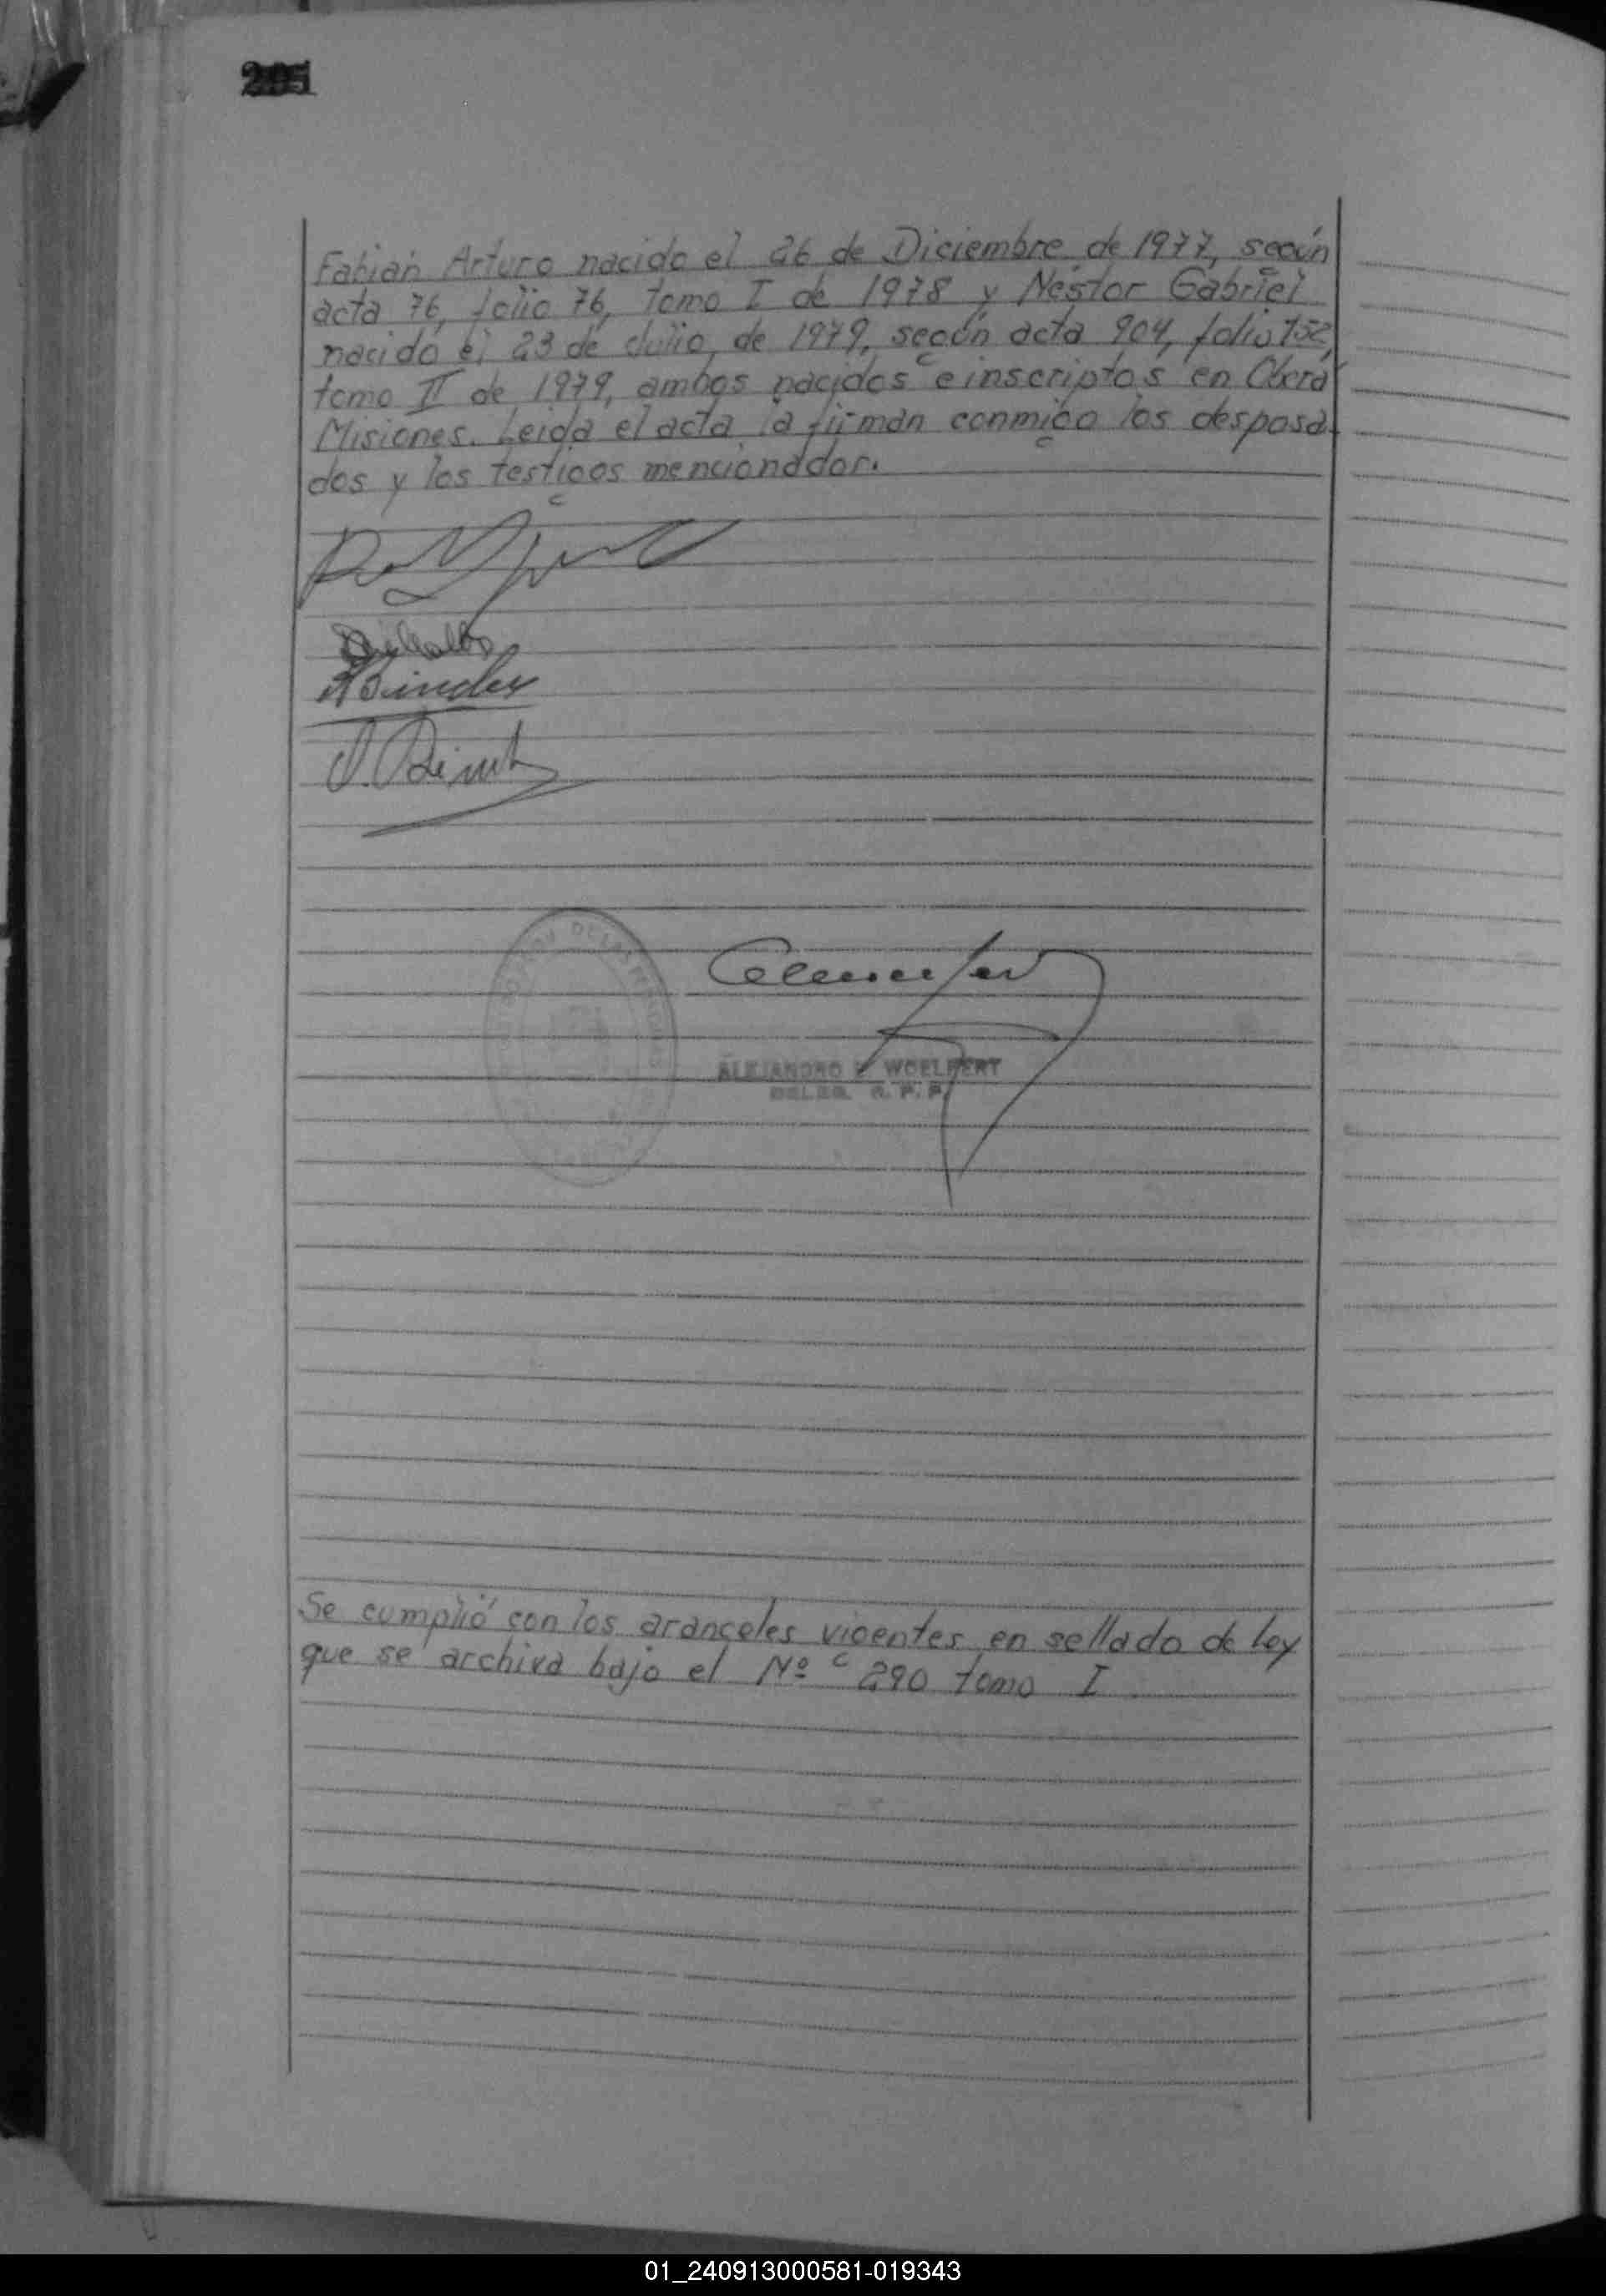 205
Fabián Arturo nacido el 26 de Diciembre de 1977, según
acta 76, folio 76, tomo I de 1978 y Néstor Gabriel
nacido el 23 de Julio, de 1979, según acta 904, folio 152,
tomo II de 1979, ambos nacidos e inscriptos en Oberá
Misiones. Leida el acta la firman conmigo los desposa-
dos y los testigos mencionados.
ALEJANDRO WOELFERT
DELEG. R. P. P.
Se cumplió con los aranceles vigentes en sellado de ley
que se archiva bajo el Nº 290 tomo I
01_240913000581-019343